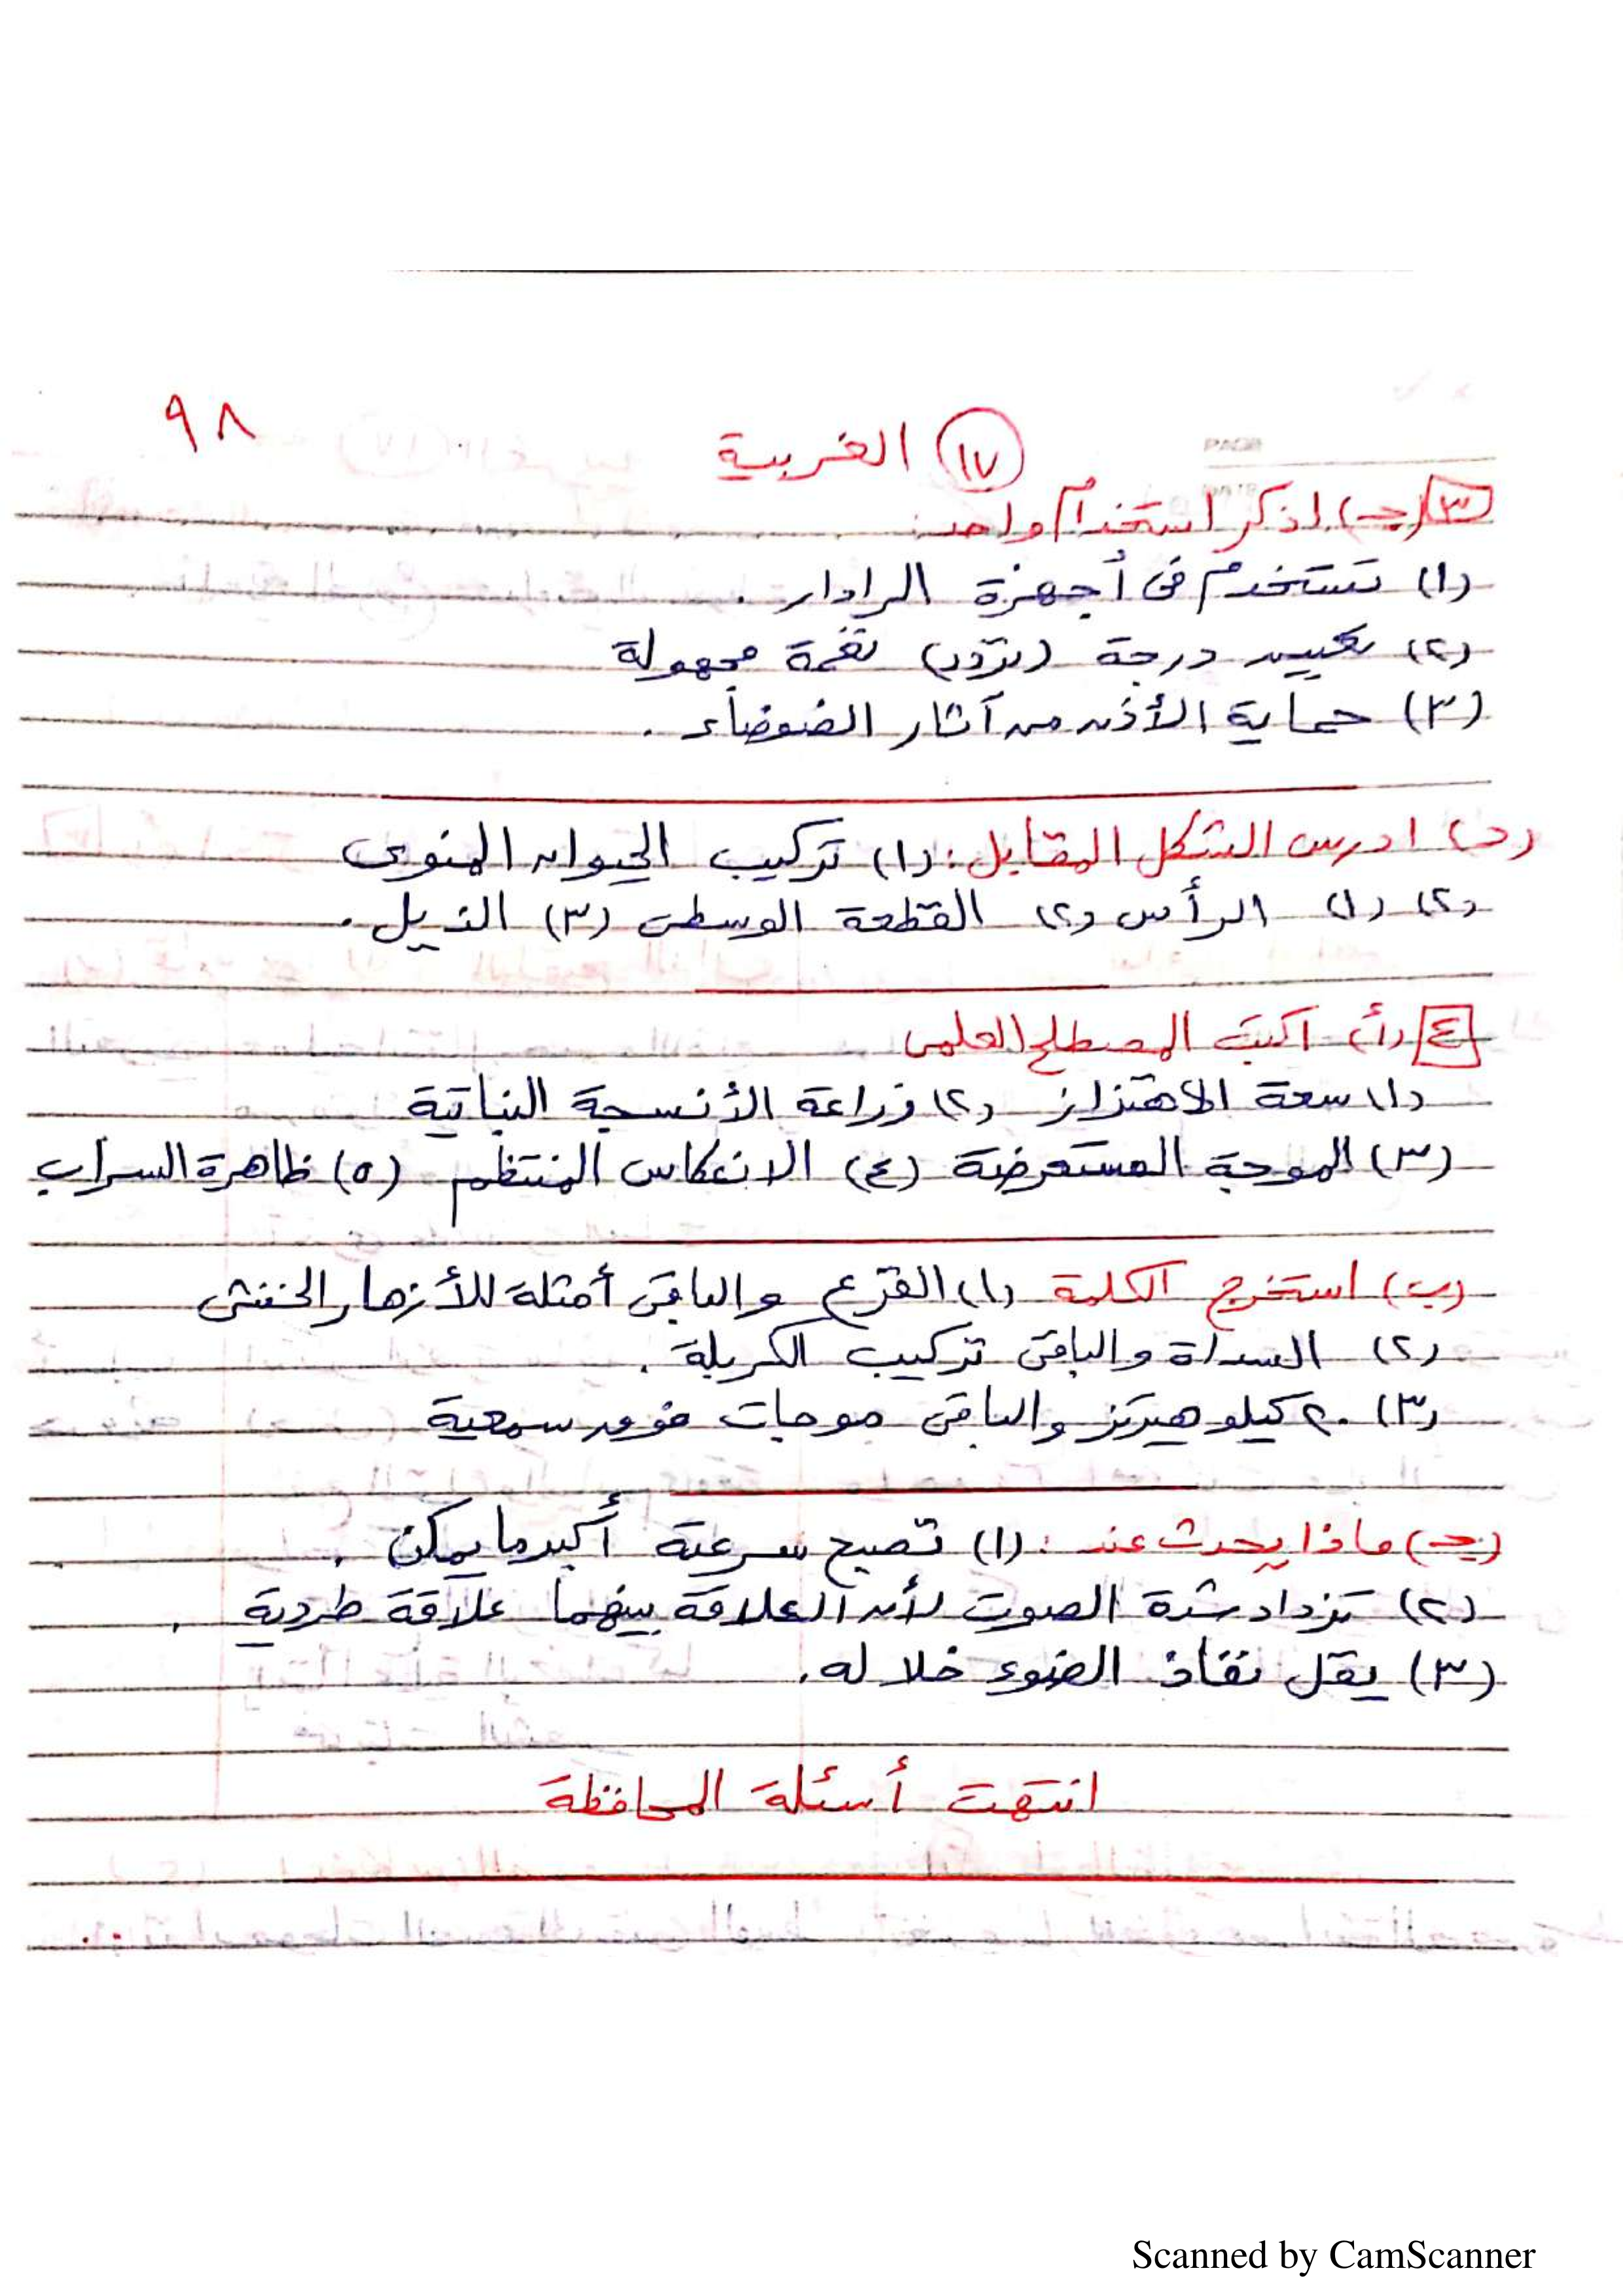 ٩٨
١٧ الغربية
PAGE
٣ (جـ) اذكر استخدام واحد:
(١) تستخدم فى أجهزة الرادار .
(٢) تعيين درجة (تردد) نغمة مجهولة
(٣) حماية الأذن من آثار الضوضاء .
(د) ادرس الشكل المقابل: (١) تركيب الحيوان المنوى
(٢) (١) الرأس (٢) القطعة الوسطى (٣) الذيل .
٤ (أ) اكتب المصطلح العلمى
(١) سعة الاهتزاز (٢) زراعة الأنسجة النباتية
(٣) الموجة المستعرضة (٤) الانعكاس المنتظم (٥) ظاهرة السراب
(ب) استخرج الكلمة (١) القرع والباقى أمثلة للأزهار الخنثى
(٢) السداة والباقى تركيب الكربلة .
(٣) ٢٠ كيلو هيرتز والباقى موجات فوق سمعية
(جـ) ماذا يحدث عند : (١) تصبح سرعته أكبر ما يمكن .
(٢) تزداد شدة الصوت لأن العلاقة بينهما علاقة طردية .
(٣) يقل نفاذ الضوء خلاله .
انتهت أسئلة المحافظة
Scanned by CamScanner